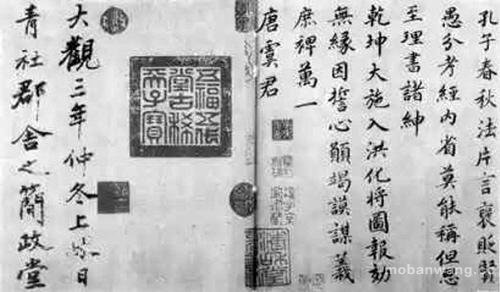 孔子春秋法片言褒貶賢
愚分考經内省莫能稱但
至理書諸紳
乾坤大施入洪化將圖報効
無緣因誓心願竭謨謀義
庶裨萬一
唐虞君
五福五代
堂古稀
天子寶
大觀三年仲冬上日
青社郡舍之簡政堂
mobanwang.com